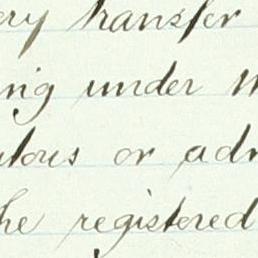 ery transfer
ing under
utors or adm
he registered